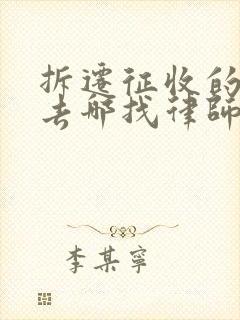 拆遷征收的
去哪找律師
李某寧